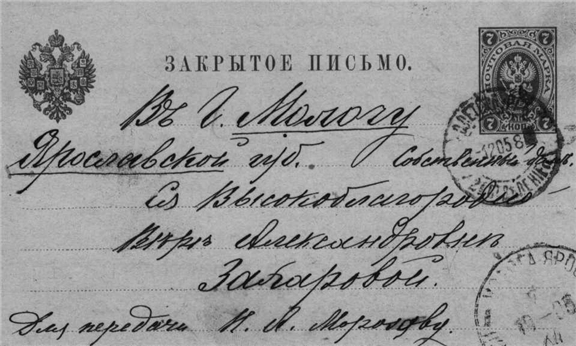 ЗАКРЫТОЕ ПИСЬМО.
7 7
ПОЧТОВАЯ МАРКА
7 КОП. 7
Въ г. Мологу
Ярославской губ. Собственный домъ.
Ея Высокоблагородію
Вѣрѣ Александровнѣ
Захаровой.
Для передачи Н. А. Морозову.